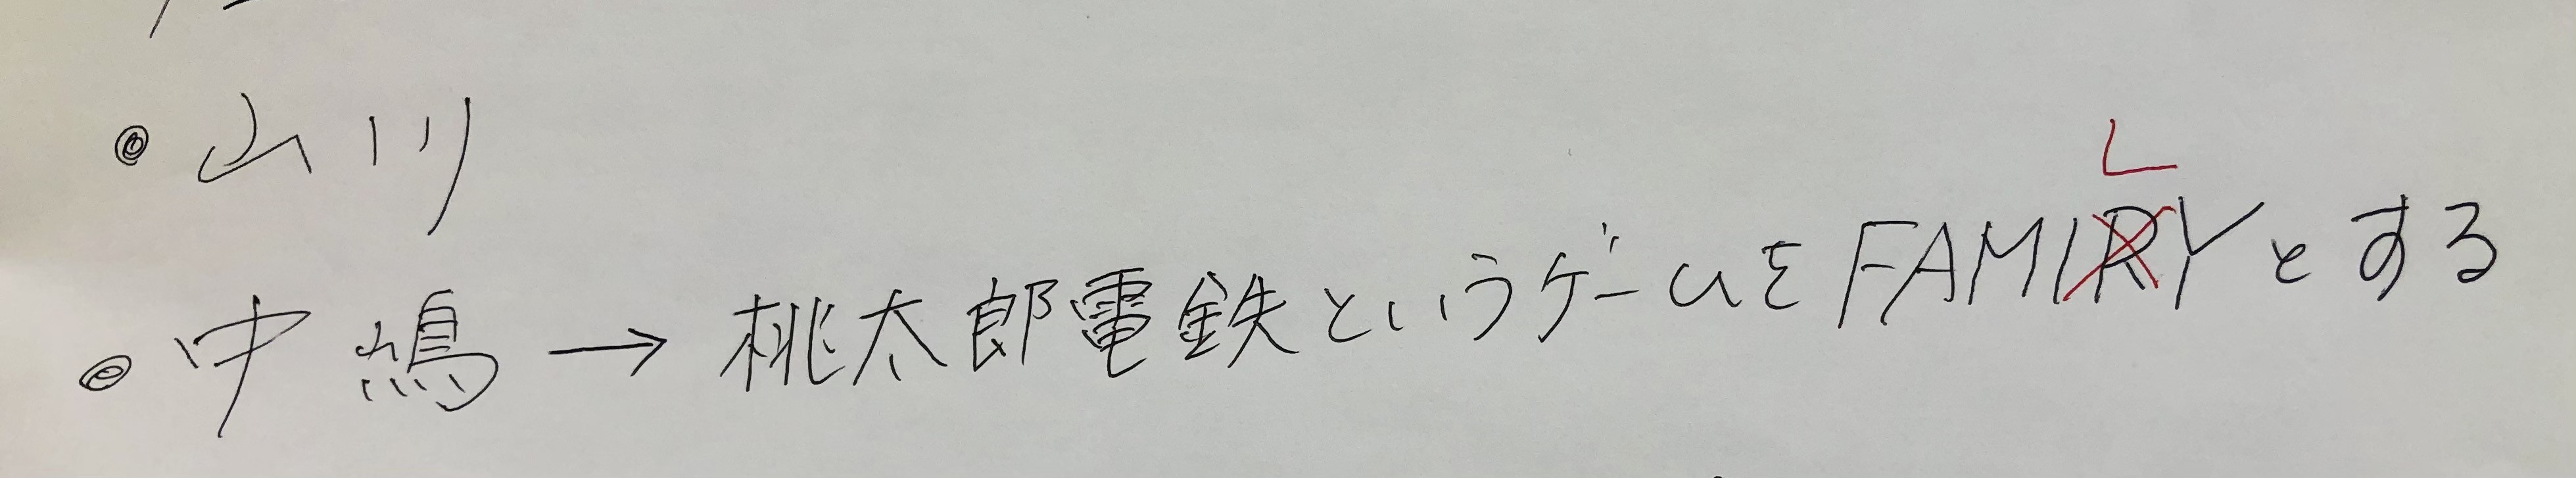 ◎ 山川
◎ 中嶋 → 桃太郎電鉄というゲームをFAMILYとする